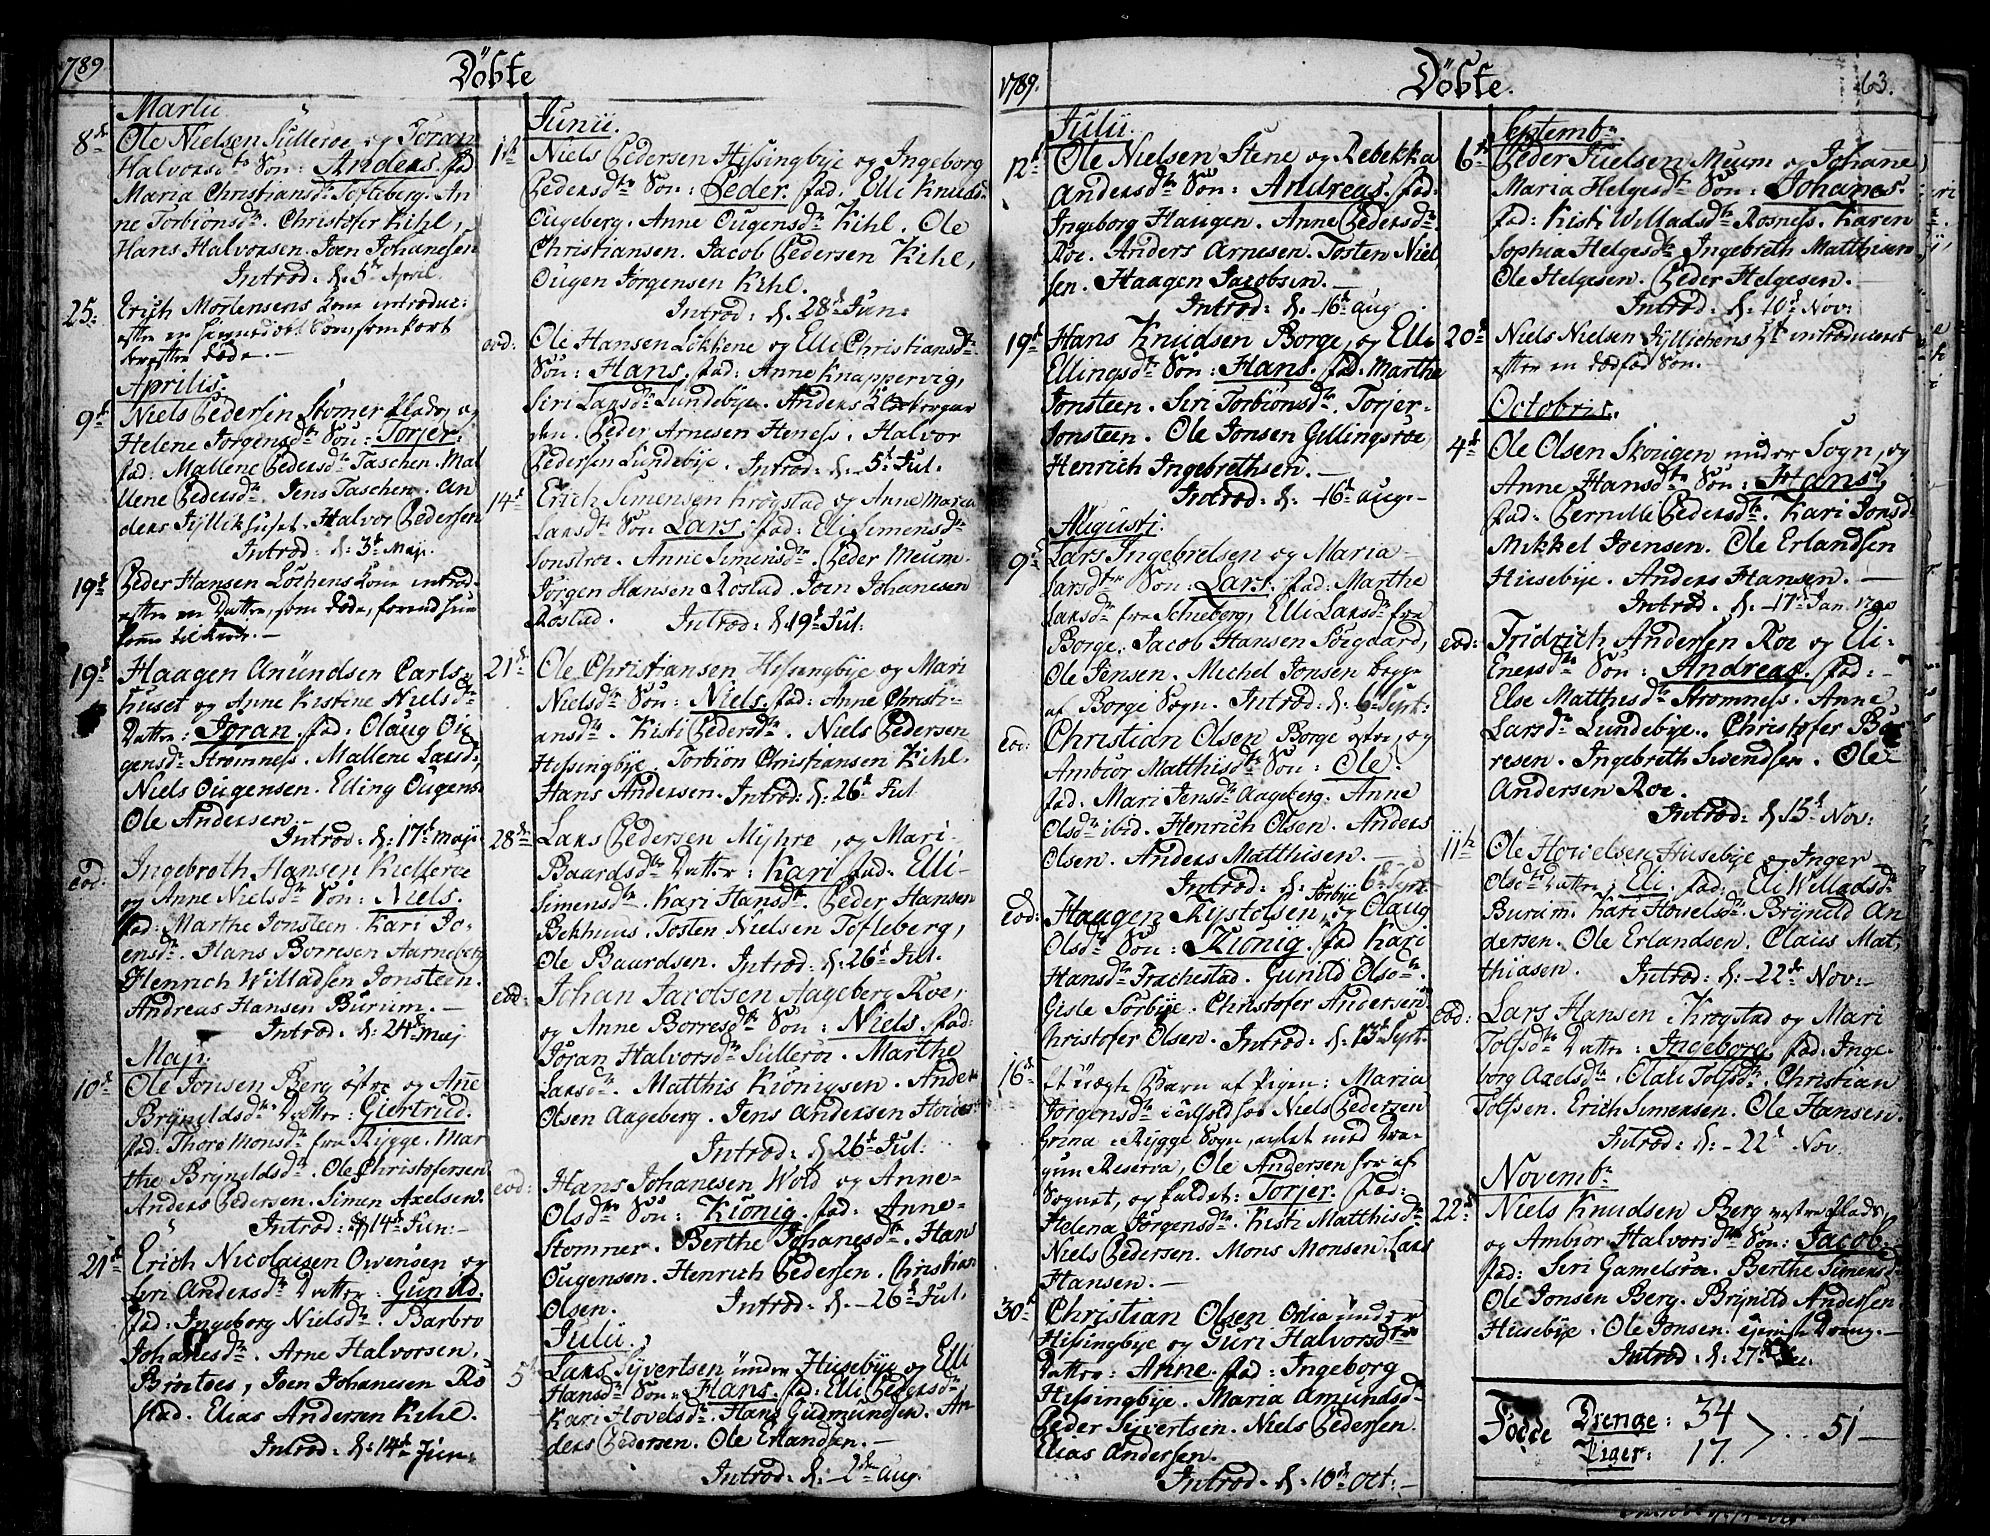 1789
Döbte
Martii
8de Ole Nielsen Sulleröe og Joran
Halvorsdtr Sön: Anders. fad
Maria Christiansd: Tofteberg. An
ne Torbionsdtr. Christofer Kihl,
Hans Halvorsen. Joen Johanesen
Introd: d: 5t April
25. Erich Mortensens Kone introduc:
efter en hiemedöbt Sön som kort
derefter döde.
Aprilis.
9t Niels Pedersen Stomer Plads, og
Helene Jörgensdtr Sön: Torjer.
fad: Mallene Pedersdtr Taschen. Mal
lene Pedersdtr. Jens Taschen. An
ders Jyllikhuset. Halvor Pedersen
Introd: d: 3t Maji.
19t Peder Hansen Lochens Kone introd.
efter en Datter, som döde, forend hun
kom til Kirke.
19t Haagen Anundsen Carls
huset og Anne Kistine Nielsdtr
Datter: Joran. fad: Olaug Ou
gensd: Stromness. Mallene Larsd,
Niels Ougensen. Elling Ougens
Ole Andersen.
Introd: d: 17t Maji
eod: Ingebreth Hansen Kielleröe
og Anne Nielsdtr Sön: Niels.
fad: Marthe Jonsteen. Kari Jo-
ensdtr. Hans Borresen
Henrich Willadsen Jonsteen.
Andreas Hansen Burum.
Introd: d: 24de Maj
Maji.
10t Ole Jonsen Berg östre og Ane
Bryneldsdtr Datter: Giertrud.
fad: Thore Monsdtr fra Rygge. Mar
the Bryneldsdtr. Ole Christofersen
Anders Pedersen. Simen Axelsen.
Introd: d: 14t Jun:
21t Erich Nicolaisen Owensen og
Siri Andersdtr Datter: Gunild.
fad: Ingeborg Nielsdtr. Barbro
Johanesdtr. Arne Halvorsen,
Joen Johanesen Rö
stad. Elias Andersen Kihl.
Introd: d: 14t Jun:
Junii.
1te Niels Pedersen Hissingbye og Ingeborg
Pedersdtr Sön: Peder. fad. Elli Knudsd.
Ougeberg. Anne Ougensdtr Kihl. Ole
Christiansen. Jacob Pedersen Kihl,
Ougen Jorgensen Kihl.
Introd: d. 28de Jun:
eod: Ole Hansen Lökkene og Elli Christiansdtr
Sön: Hans. fad: Anne Knappervig,
Siri Larsdtr Lundebye. Anders
Peder Arnesen Heness. Halvor
Pedersen Lundebye. Introd: d. 5t Jul.
14t Erich Simensen Krogstad og Anne Maria
Larsdtr Sön Lars. fad: Eli Simensdtr
Sonströe. Anne Simensdtr. Peder Meum.
Jorgen Hansen Rostad. Joen Johanesen
Rostad. Introd: d. 19t Jul:
21de Ole Christiansen Hissingbye og Mari
Nielsdtr Sön: Niels. fad: Anne Christi-
ansdtr. Kisti Pedersdtr. Niels Pedersen
Hissingbye. Torbiön Christiansen Kihl.
Hans Andersen. Introd: d: 26t Jul
28de Lars Pedersen Myhre, og Mari
Baardsdtr Datter: Kari fad: Elli
Simensdtr. Kari Hansdtr. Peder Hansen
Bekhuus. Tosten Nielsen Tofteberg,
Ole Baardsen. Introd: d: 26t Jul.
eod: Johan Jacobsen Aageberg Roe,
og Anne Borresdtr Sön: Niels. fad:
Joran Halvorsdtr Sulleröe. Marthe
Larsdtr. Matthis Kiönigsen. Anders
Olsen Aageberg. Jens Andersen
Introd: d: 26t Jul:
eod: Hans Johanesen Wold og Anne
Olsdtr Sön: Kiönig. fad: Anne
Stomner. Berthe Johanesdtr. Han
Ougensen. Henrich Pedersen. Christian
Olsen. Introd: d. 26t Jul.
Julii.
5t Lars Syvertsen under Husebye og Elli
Hansdtr Sön: Hans. fad: Elli Pedersdtr
Kari Hovelsdtr. Hans Gudmundsen. An
ders Pedersen. Ole Erlandsen.
Introd: d: 2den Aug.
1789.
Döbte.
63.
Julii.
12t Ole Nielsen Stene og Rebekka
Andersdtr Sön: Andreas. fad:
Ingeborg Haugen. Anne Pedersdtr
Roe. Anders Arnesen. Tosten Niel
sen. Haagen Jacobsen.
Introd: d. 16t Aug
19t Hans Knudsen Borge, og Elli
Ellingsdtr Sön: Hans. fad: Marthe
Jonsteen. Siri Torbionsdtr. Torjer
Jonsteen. Ole Jonsen Gillingsröe,
Henrich Ingebrethsen.
Introd: d. 16t Aug:
Augusti.
9t Lars Ingebretsen og Maria
Larsdtr Sön: Lars. fad: Marthe
Larsdtr fra Schieberg, Elli Larsdtr fra
Borge. Jacob Hansen Sörgaard,
Ole Jensen. Michel Jonsen begge
af Borge Sogn. Introd: d. 6t Sept:
eod: Christian Olsen Borge östre, og
Ambior Matthisdtr Sön: Ole.
fad: Mari Jensdtr Aageberg: Anne
Olsdtr ibid. Henrich Olsen. Anders
Olsen. Anders Matthisen.
Introd: d. 6t Sept
eod: Haagen Kystolsen Torbye og Olaug
Olsdtr Sön: Kiönig. fad Kari
Hansdtr Frachestad. Gunild Olsdtr.
Gisle Torbye. Christofer Andersen
Christofer Olsen. Introd: d. 13t Sept.
16t et uægte Barn af Pigen: Maria
Jorgensdtr i Huse hos Niels Pedersen
Grima i Rygge Sogn, avlet med Dra-
gun Reserva, Ole Andersen her af
Sognet, og kaldet: Torjer. fad:
Helena Jörgensdtr. Kisti Matthisdtr
Niels Pedersen. Mons Monsen. Lars
Hansen.
30t Christian Olsen Odia under
Hissingbye og Guri Halvorsdtr
Datter: Anne. fad: Ingeborg
Hissingbye. Maria Amundsdtr
Peder Syvertsen. Niels Pedersen.
Elias Andersen.
Introd: d: 10t Oct:
Septembr.
6t Peder Nielsen Meum og Johanne
Maria Helgesdtr Sön: Johanes.
fad: Kisti Willadsdtr Rosness. Karen
Sophia Helgesdtr Ingebreth Matthisen
Ole Helgesen. Peder Helgesen.
Introd: d. 10t Nov:
20de Niels Nielsen Jyllichens Kone introduceret
efter en dödföd Sön.
Octobris.
4t Ole Olsen Skougen under Sogn, og
Anne Hansdtr Sön: Hans.
fad: Pernille Pedersdtr. Kari Jonsd.
Mikkel Joensen. Ole Erlandsen
Husebye. Anders Hansen.
Introd: d. 17t Jan. 1790
eod: Fridrich Andersen Roe og Eli
Enersdtr Sön: Andreas. fad:
Else Matthisdtr Stromness. Anne
Larsd: Lundebye. Christofer Bör
resen. Ingebreth Swendsen. Ole
Andersen Roe.
Introd: d. 15t Nov:
11te Ole Hovelsen Husebye og Inger
Olsdtr Datter: Eli. fad: Eli Willadsdtr
Burum. Kari Hovelsdtr. Bryneld An
dersen. Ole Erlandsen. Claus Mat
thiasen. Introd: d. 22de Nov:
eod: Lars Hansen Krogstad og Mari
Tolfsdtr Datter: Ingeborg. fad: Inge-
borg Axelsdtr. Olau Tolfsdtr. Christian
Tolfsen. Erich Simensen. Ole Hansen.
Introd: d. 22de Nov.
Novembr.
22de Niels Knudsen Berg vestre Plads,
og Ambior Halvorsdtr Sön: Jacob.
fad: Siri Gamelsröe. Berthe Simensd.
Ole Jonsen Berg. Bryneld Andersen
Husebye. Ole Jonsen.
Introd: d. 27de
Födde Drenge: 34
Piger: 17 .. 51